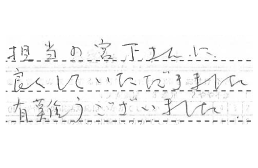 担当の宮下さんに
良くしていただきました
有難うございました。